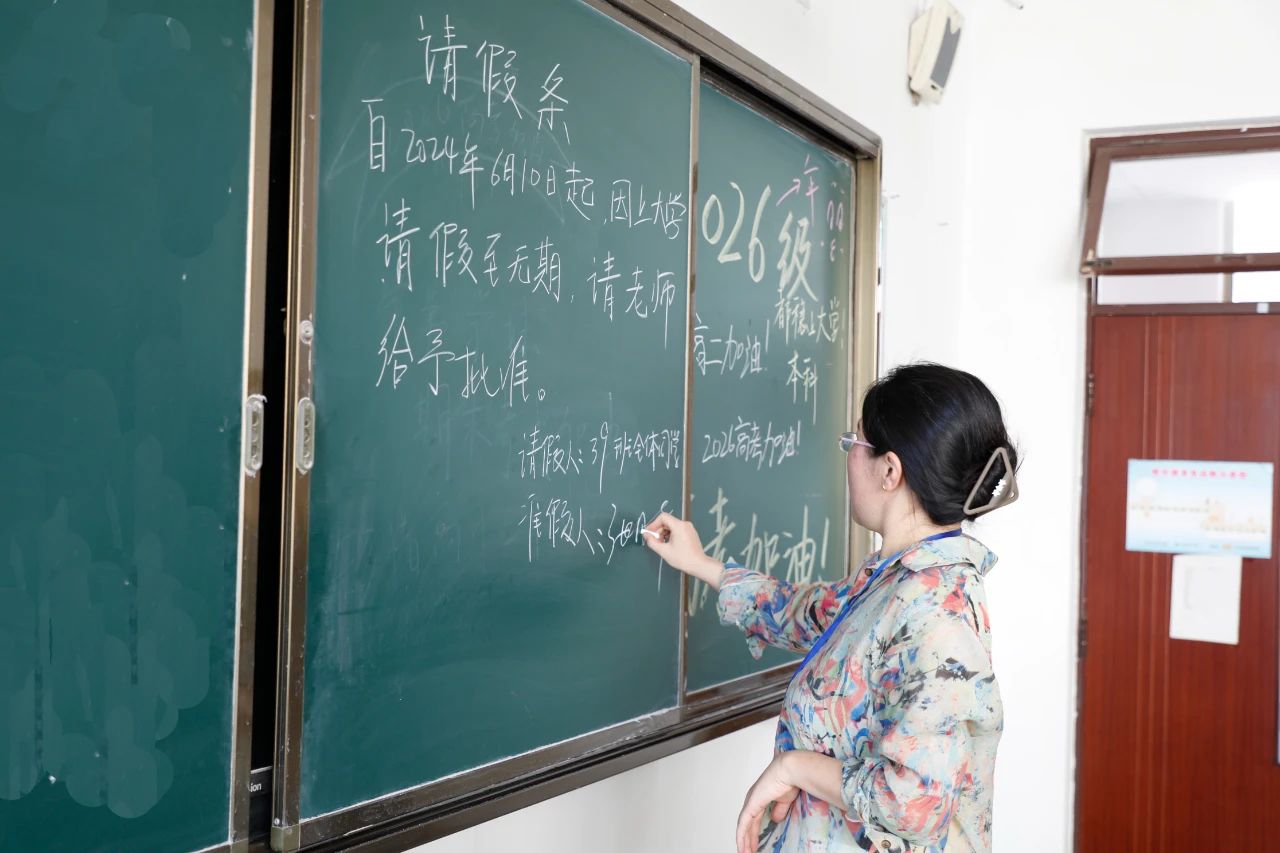 请假条
自2024年6月10日起,因上大学
请假至无期,请老师
给予批准。
请假人:39班全体同学
准假人:
026级
都稳上大学!
本科
高二加油!
2026高考加油!
加油!